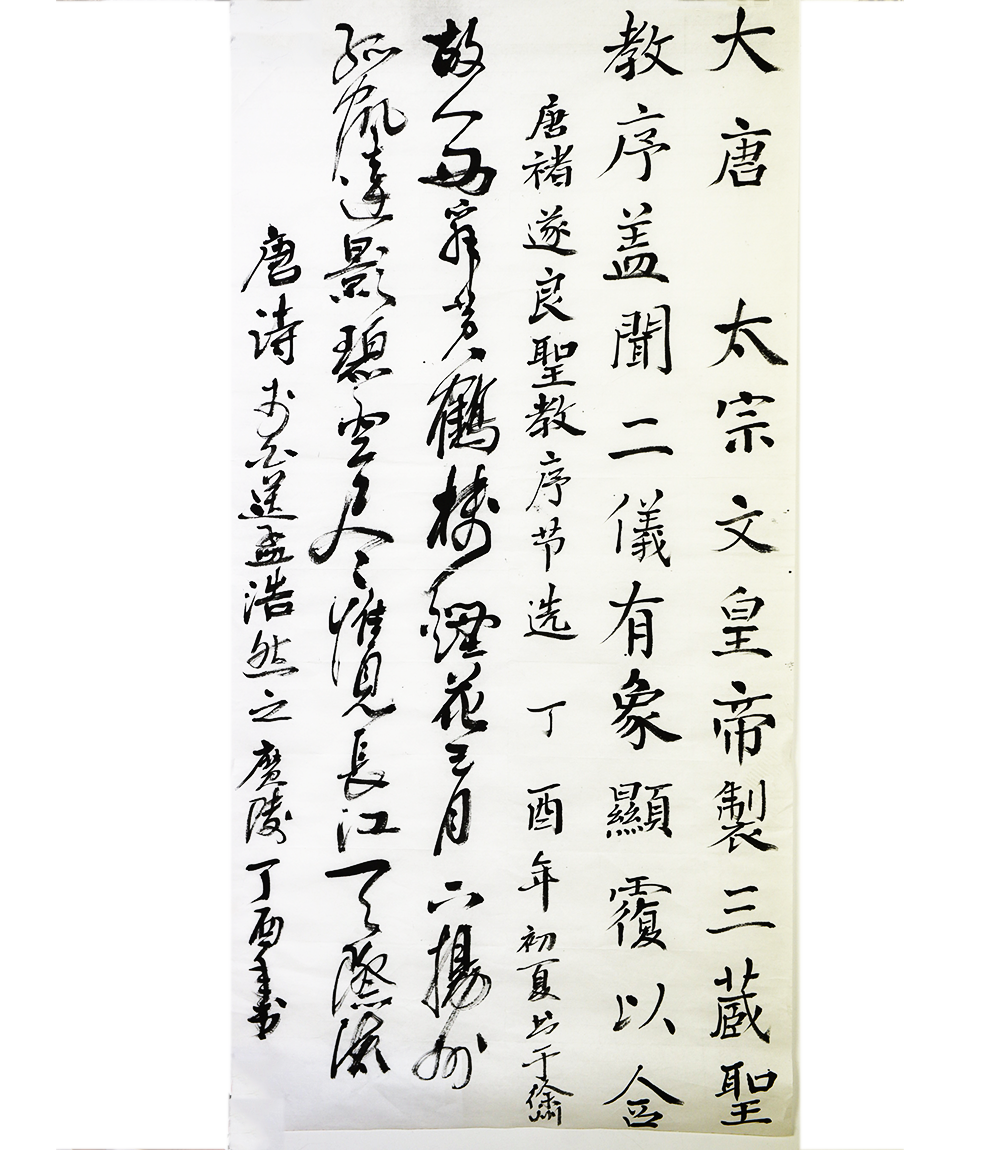 大唐 太宗文皇帝製三蔵聖
教序盖聞二儀有象顯覆以含
唐褚遂良聖教序节选 丁酉年初夏书于
故人西辞黄鶴楼煙花三月下揚州
孤帆遠影碧空尽惟見長江天際流
唐诗李白送孟浩然之廣陵丁酉年书